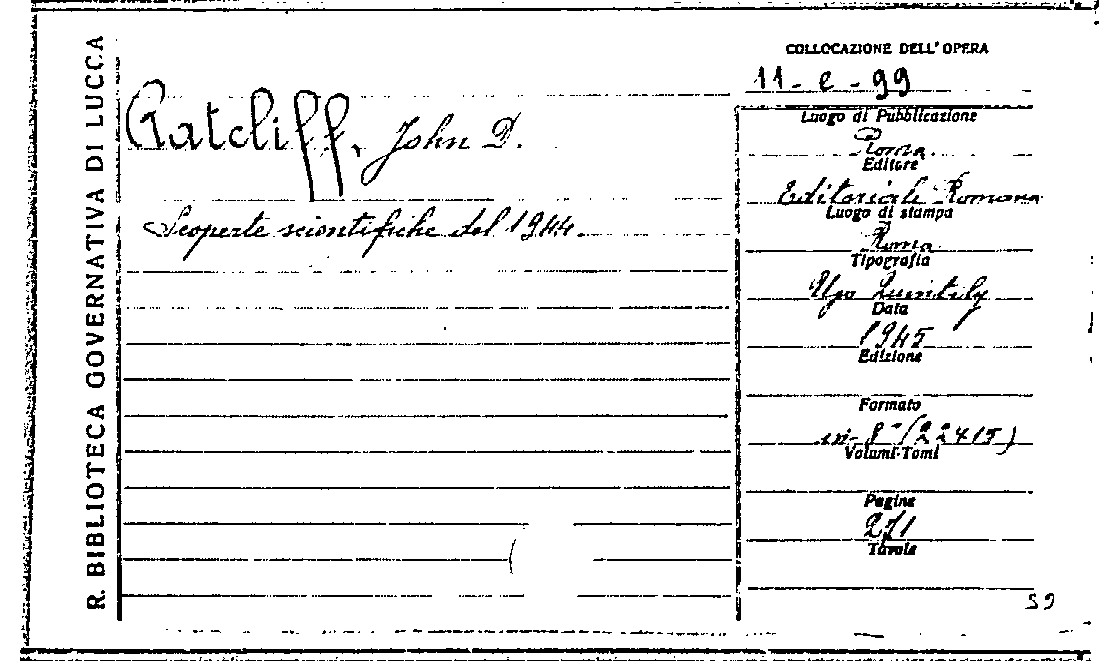 R. BIBLIOTECA GOVERNATIVA DI LUCCA
Ratcliff, John D.
Scoperte scientifiche del 1944.
COLLOCAZIONE DELL'OPERA
11-e-99
Luogo di Pubblicazione
Roma
Editore
Editoriale Romana
Luogo di stampa
Roma
Tipografia
Ugo Quintily
Data
1945
Edizione
Formato
in-8° (22x15)
Volumi-Tomi
Pagine
271
Tavole